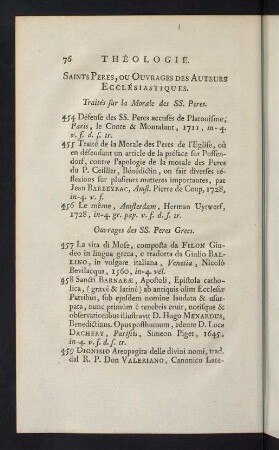 76 THÉOLOGIE.
SAINTS PERES, OU OUVRAGES DES AUTEURS
ECCLÉSIASTIQUES.
Traités sur la Morale des SS. Peres.
454 Défense des SS. Peres accusés de Platonisme;
Paris, le Conte & Montalant, 1711, in-4.
v. f. d. s. tr.
455 Traité de la Morale des Peres de l'Eglise, où
en défendant un article de la préface sur Puffen-
dorf, contre l'apologie de la morale des Peres
du P. Ceillier, Bénédictin, on fait diverses ré-
flexions sur plusieurs matieres importantes, par
Jean BARBEYRAC, Amst. Pierre de Coup, 1728,
in-4. v. f.
456 Le même, Amsterdam, Herman Uytwerf,
1728, in-4. gr. pap. v. f. d. s. tr.
Ouvrages des SS. Peres Grecs.
457 La vita di Mose, composta da FILON Giu-
deo in lingua greca, e tradotta da Giulio BAL-
LINO, in volgare italiana, Venetia, Nicolò
Bevilacqua, 1560, in-4. vél.
458 Sancti BARNABÆ, Apostoli, Epistola catho-
lica, (græcè & latinè) ab antiquis olim Ecclesiæ
Patribus, sub ejusdem nomine laudata & usur-
pata, nunc primùm è tenebris eruit, notisque &
observationibus illustravit D. Hugo MENARDUS,
Benedictinus. Opus posthumum, edente D. Luca
DACHERY, Parisiis, Simeon Piget, 1645,
in-4. v. f. d. s. tr.
459 DIONISIO Areopagita delle divini nomi, trad.
dal R. P. Don VALERIANO, Canonico Late-